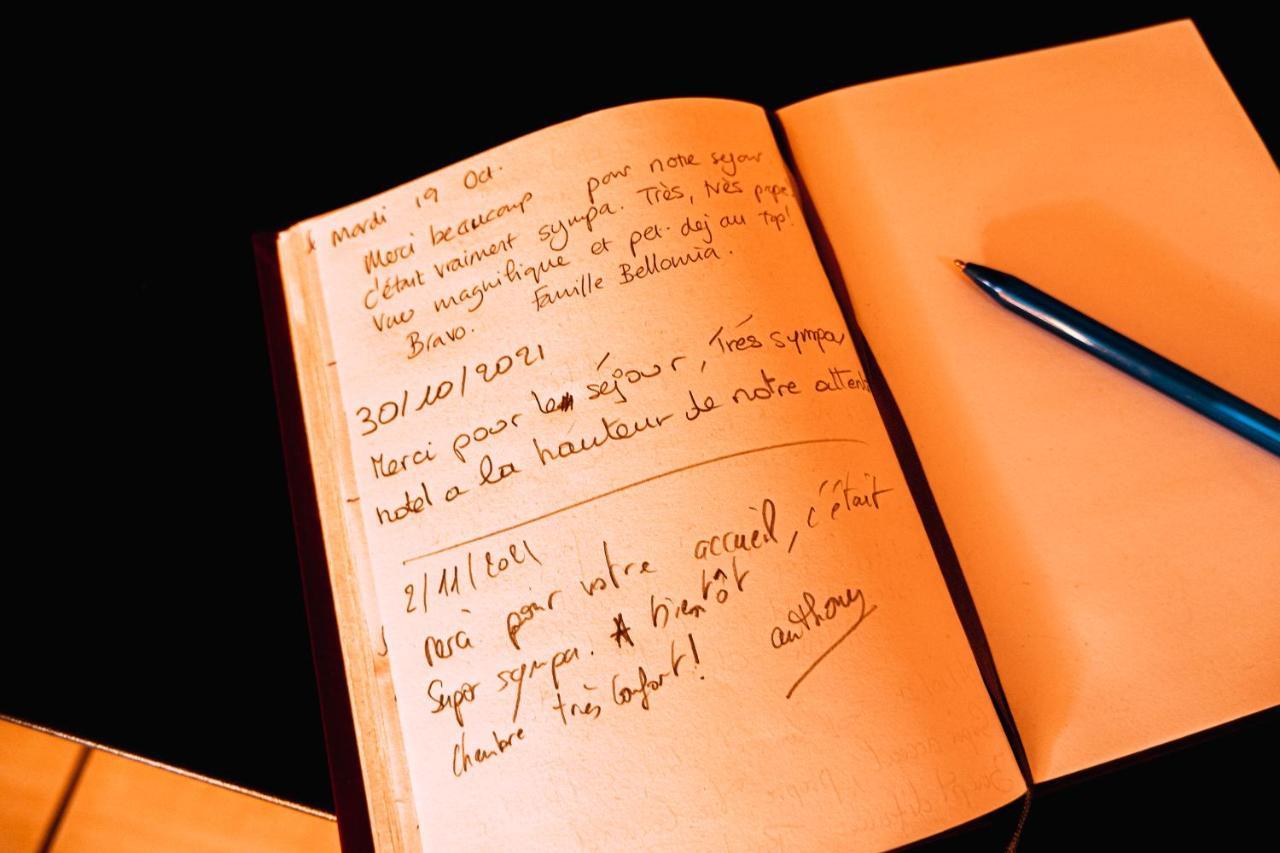 Mardi 19 Oct.
Merci beaucoup pour notre sejour
c'était vraiment sympa. Très, très
vue magnifique et pet. dej au top!
Bravo. Famille Bellomia.
30/10/2021
Merci pour le séjour, Très sympa
hotel a la hauteur de notre attent
2/11/2021
Merci pour votre accueil, c'était
Super sympa. A bientôt
Chambre très Confort! anthony